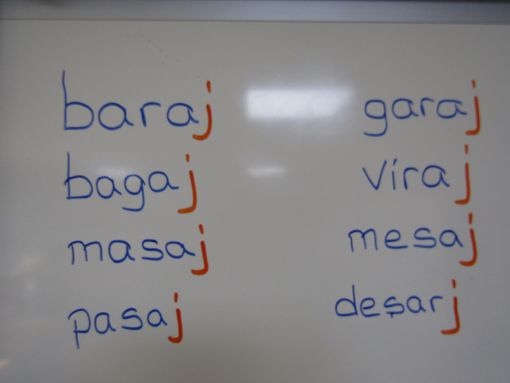 baraj garaj
bagaj viraj
masaj mesaj
pasaj deşarj